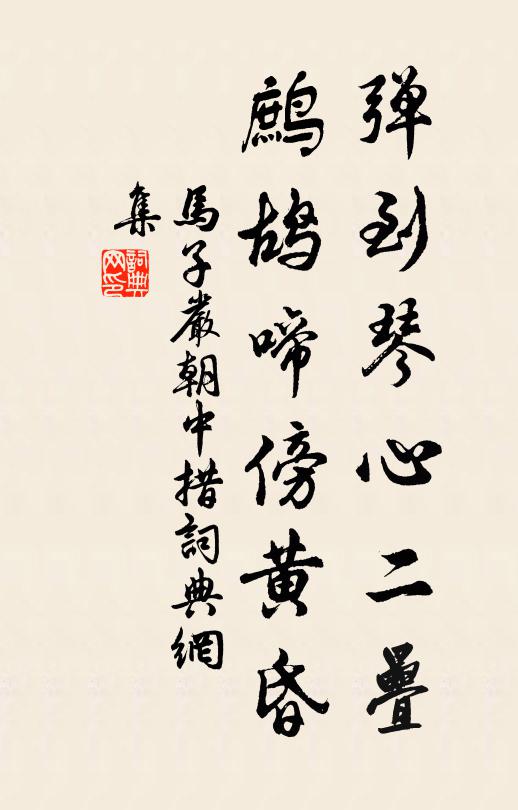 彈到琴心二疊
鷓鴣啼傍黄昏
馬子嚴朝中措詞典網
集
詞典
网印